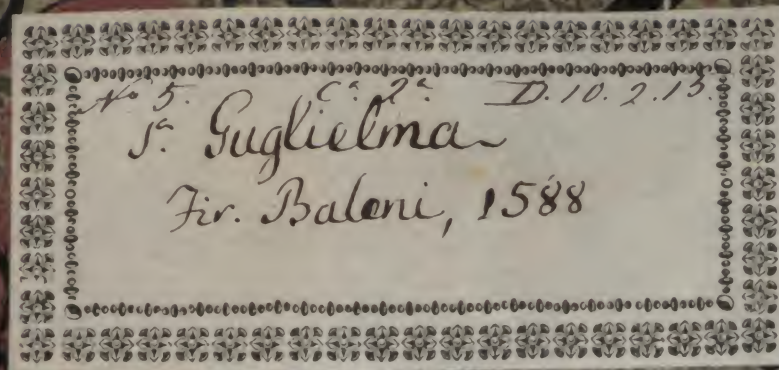 No 5. Cª. 2ª. D.10.2.15.
Sª. Guglielma
Fir. Baleni, 1588